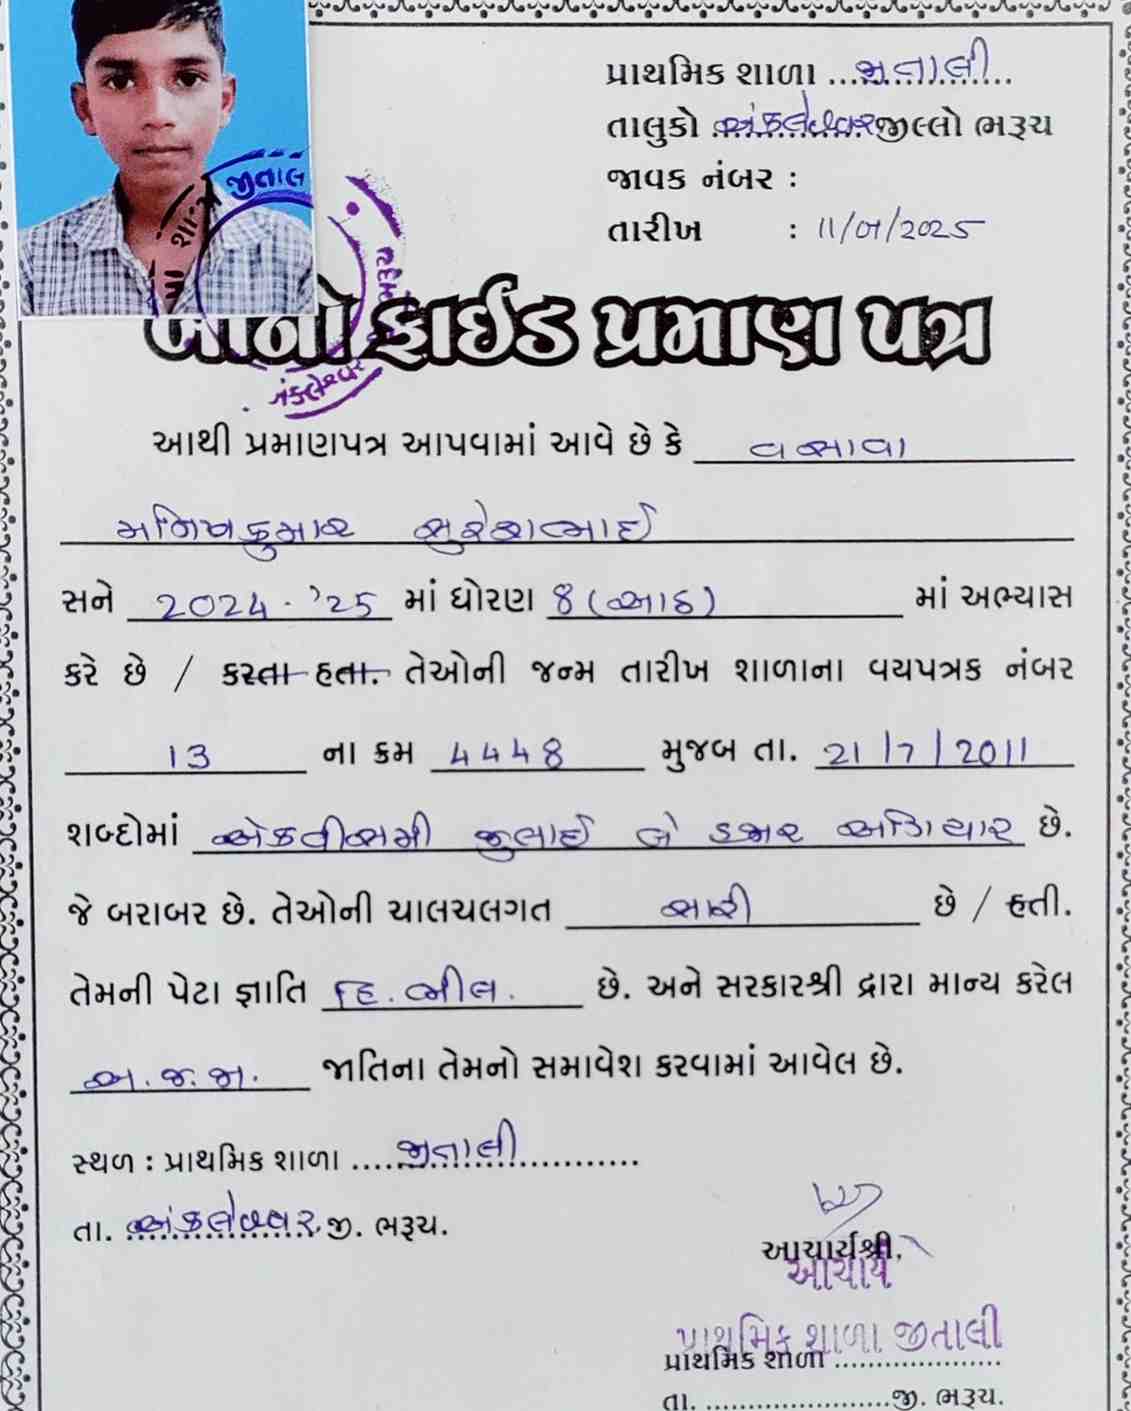 પ્રાથમિક શાળા ...જીતાલી...
તાલુકો અંકલેશ્વર જીલ્લો ભરૂચ
જાવક નંબર :
તારીખ : 11/01/2025
જીતાલ
અંકલેશ્વર
બોનોફાઈડ પ્રમાણ પત્ર
આથી પ્રમાણપત્ર આપવામાં આવે છે કે વસાવા
મનિષકુમાર સુરેશભાઈ
સને 2024-'25 માં ધોરણ 8 (આઠ) માં અભ્યાસ
કરે છે / કરતા હતા. તેઓની જન્મ તારીખ શાળાના વયપત્રક નંબર
13 ના ક્રમ 4448 મુજબ તા. 21/7/2011
શબ્દોમાં એકવીસમી જુલાઈ બે હજાર અગિયાર છે.
જે બરાબર છે. તેઓની ચાલચલગત સારી છે / હતી.
તેમની પેટા જ્ઞાતિ હિ. ભીલ. છે. અને સરકારશ્રી દ્વારા માન્ય કરેલ
અ.જ.જા. જાતિના તેમનો સમાવેશ કરવામાં આવેલ છે.
સ્થળ : પ્રાથમિક શાળા ....જીતાલી....
તા. અંકલેશ્વર જી. ભરૂચ.
આચાર્યશ્રી,
આચાર્ય
પ્રાથમિક શાળા જીતાલી
પ્રાથમિક શાળા ....................
તા. ......................જી. ભરૂચ.